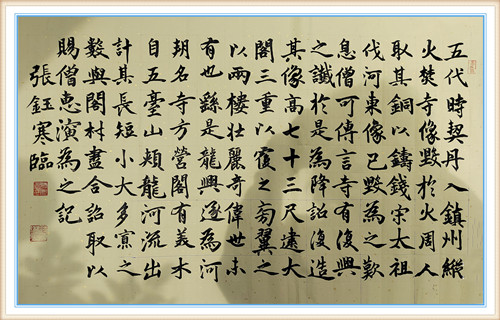 五代時契丹入鎮州縱
火焚寺像毀於火周人
取其銅以鑄錢宋太祖
伐河東像已毀為之歎
息僧可傳言寺有復興
之讖於是為降詔復造
其像高七十三尺建大
閣三重以覆之旁翼之
以兩樓壯麗奇偉世未
有也繇是龍興遂為河
朔名寺方營閣有美木
自五臺山頰龍河流出
計其長短小大多寡之
數與閣材盡合詔取以
賜僧惠演為之記
張鈺寒臨